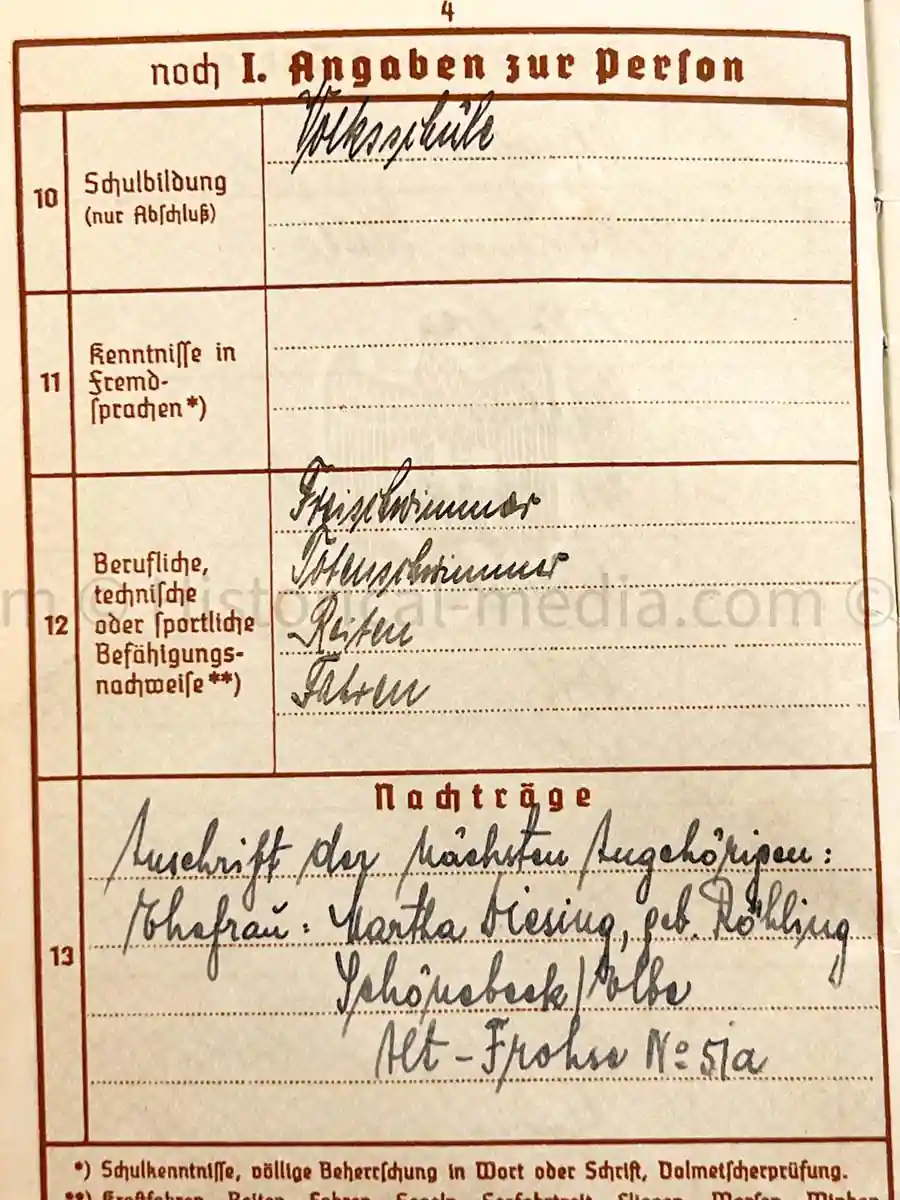 4
noch I. Angaben zur Person
10
Schulbildung
(nur Abschluß)
Volksschule
11
Kenntnisse in
Fremd-
sprachen*)
12
Berufliche,
technische
oder sportliche
Befähigungs-
nachweise**)
Freischwimmer
Totenschwimmer
Reiten
Fahren
13
Nachträge
Anschrift der nächsten Angehörigen:
Ehefrau: Martha Diesing, geb. Röhling
Schönebeck/Elbe
Alt-Frohse No 5/a
*) Schulkenntnisse, völlige Beherrschung in Wort oder Schrift, Dolmetscherprüfung.
**) Kraftfahren, Reiten, Fahren, Segeln, Seefahrtzeit, Fliegen, Morsen, Winken
m © historical-media.com ©